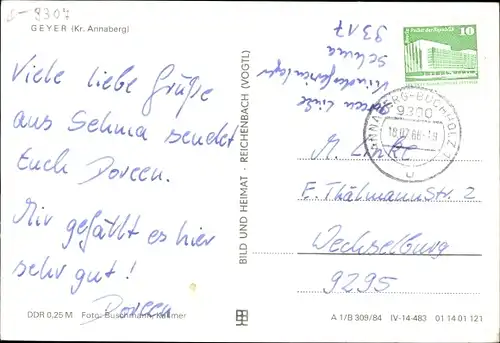 D-9307
GEYER (Kr. Annaberg)
Viele liebe Grüße
aus Sehma sendet
Euch Doreen.
Mir gefällt es hier
sehr gut!
Doreen
DDR 0,25 M Foto: Buschmann, Kollmer
BILD UND HEIMAT · REICHENBACH (VOGTL)
Doreen Linke
Kinderferienlager
Sehma
9317
Palast der Republik
10
ANNABERG-BUCHHOLZ 1
9300
18.07.86-18
u
M. Linke
E. Thälmannstr. 2
Wechselburg
9295
A 1/B 309/84 IV-14-483 01 14 01 121